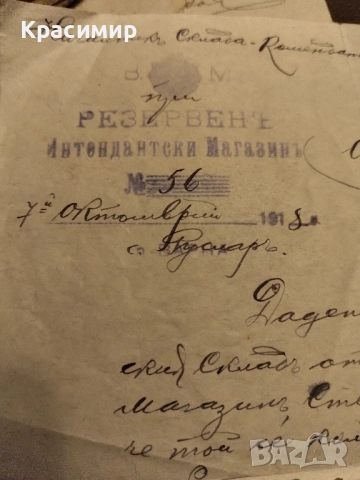 Красимир
Началникъ Склада - Комендат
В. М.
при
РЕЗЕРВЕНЪ
Интендантски Магазинъ
№ 56
7й октомврий 1918 г.
с. Пуляръ.
Даден
ский складъ от
магазинъ, Сте
че той се
bazar.bg